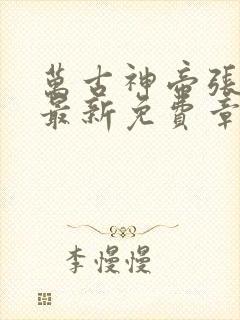 萬古神帝張
最新免費章
李慢慢